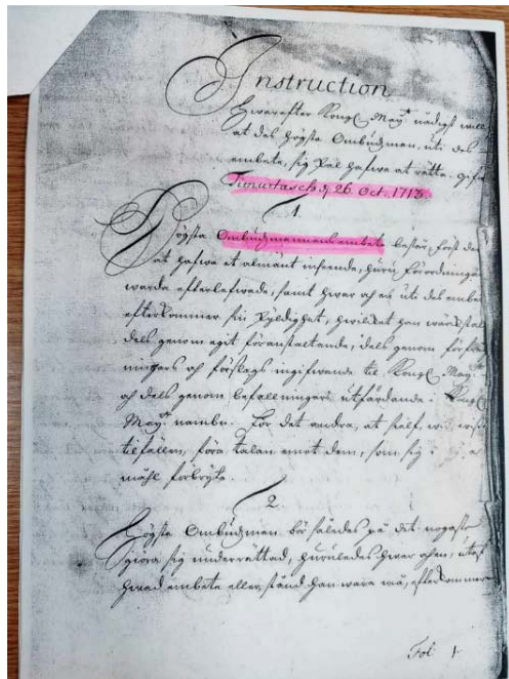 Instruction
Hwarefter Kongl. May:t nådigst will
at des Högste Ombudzman, uti des
embete, sig skal hafwa at rätta. gifw
Timurtasch d. 26. Oct. 1713.
1.
Högsta Ombudzmannens embete består, först der
at hafwa et allmänt inseende, huru förordningar
warda efterlefwade, samt hwar och en uti det embete
efterkommer sin skyldighet, hwilket han wärkstäl
dels genom egit föranstaltande, dels genom
ningars och förslags ingifwande til Kongl. May:t
och dels genom befallningars utfärdande i Kongl
May:ts namn. För det andra, at sielf, wid
tilfällen, föra talan emot dem, som sig i
måhl förbryta.
2.
Högste Ombudzman bör således på det nogaste
giöra sig underrättad, huruledes hwar och en, utaf
hwad embete eller stånd han wara må, efterkommer
Fol 1